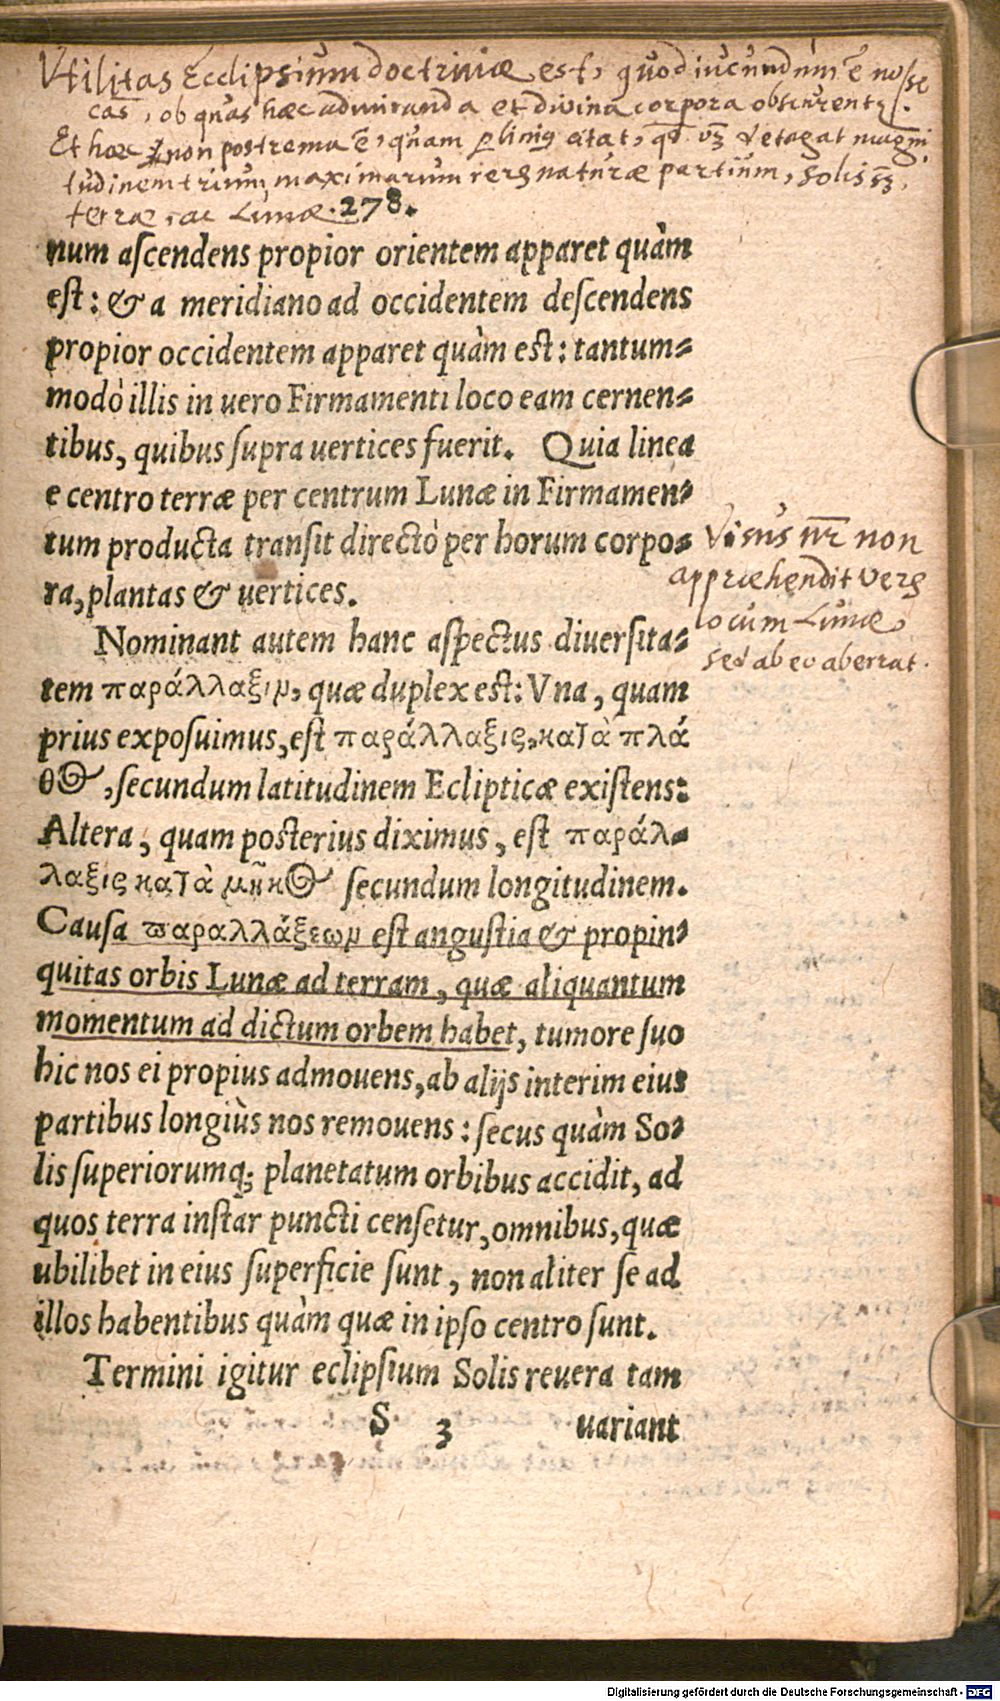 Vtilitas Ecclipsium doctrinæ est, quod iucundum ē nosse
cas, ob quas hæc admiranda et divina corpora obscurentꝛ.
Et hæc non postrema ē, quam plinius citat, qđ vz detegat magni
tudinem trium maximarum rerꝫ naturæ partium, solis sꝫ,
terræ, ac Lunæ.278.
num aſcendens propior orientem apparet quàm
eſt: & a meridiano ad occidentem deſcendens
propior occidentem apparet quàm eſt: tantum-
modò illis in uero Firmamenti loco eam cernen-
tibus, quibus ſupra uertices fuerit. Quia linea
e centro terræ per centrum Lunæ in Firmamen-
tum producta tranſit directò per horum corpo-
ra, plantas & uertices.
Visus nr̄ non
appræhendit verꝫ
locum Lunæ,
sed ab eo aberrat.
Nominant autem hanc aſpectus diuerſita-
tem παράλλαξιμ, quæ duplex eſt: Vna, quam
prius expoſuimus, eſt παράλλαξις, κατὰ πλά
θος, ſecundum latitudinem Eclipticæ exiſtens:
Altera, quam poſterius diximus, eſt παράλ-
λαξις κατὰ μῆκος ſecundum longitudinem.
Cauſa ϖαραλλάξεωμ eſt anguſtia & propin-
quitas orbis Lunæ ad terram, quæ aliquantum
momentum ad dictum orbem habet, tumore ſuo
hic nos ei propius admouens, ab alijs interim eius
partibus longiùs nos remouens: ſecus quàm So-
lis ſuperiorumq; planetatum orbibus accidit, ad
quos terra inſtar puncti cenſetur, omnibus, quæ
ubilibet in eius ſuperficie ſunt, non aliter ſe ad
illos habentibus quàm quæ in ipſo centro ſunt.
Termini igitur eclipſium Solis reuera tam
S 3 uariant
Digitalisierung gefördert durch die Deutsche Forschungsgemeinschaft - DFG